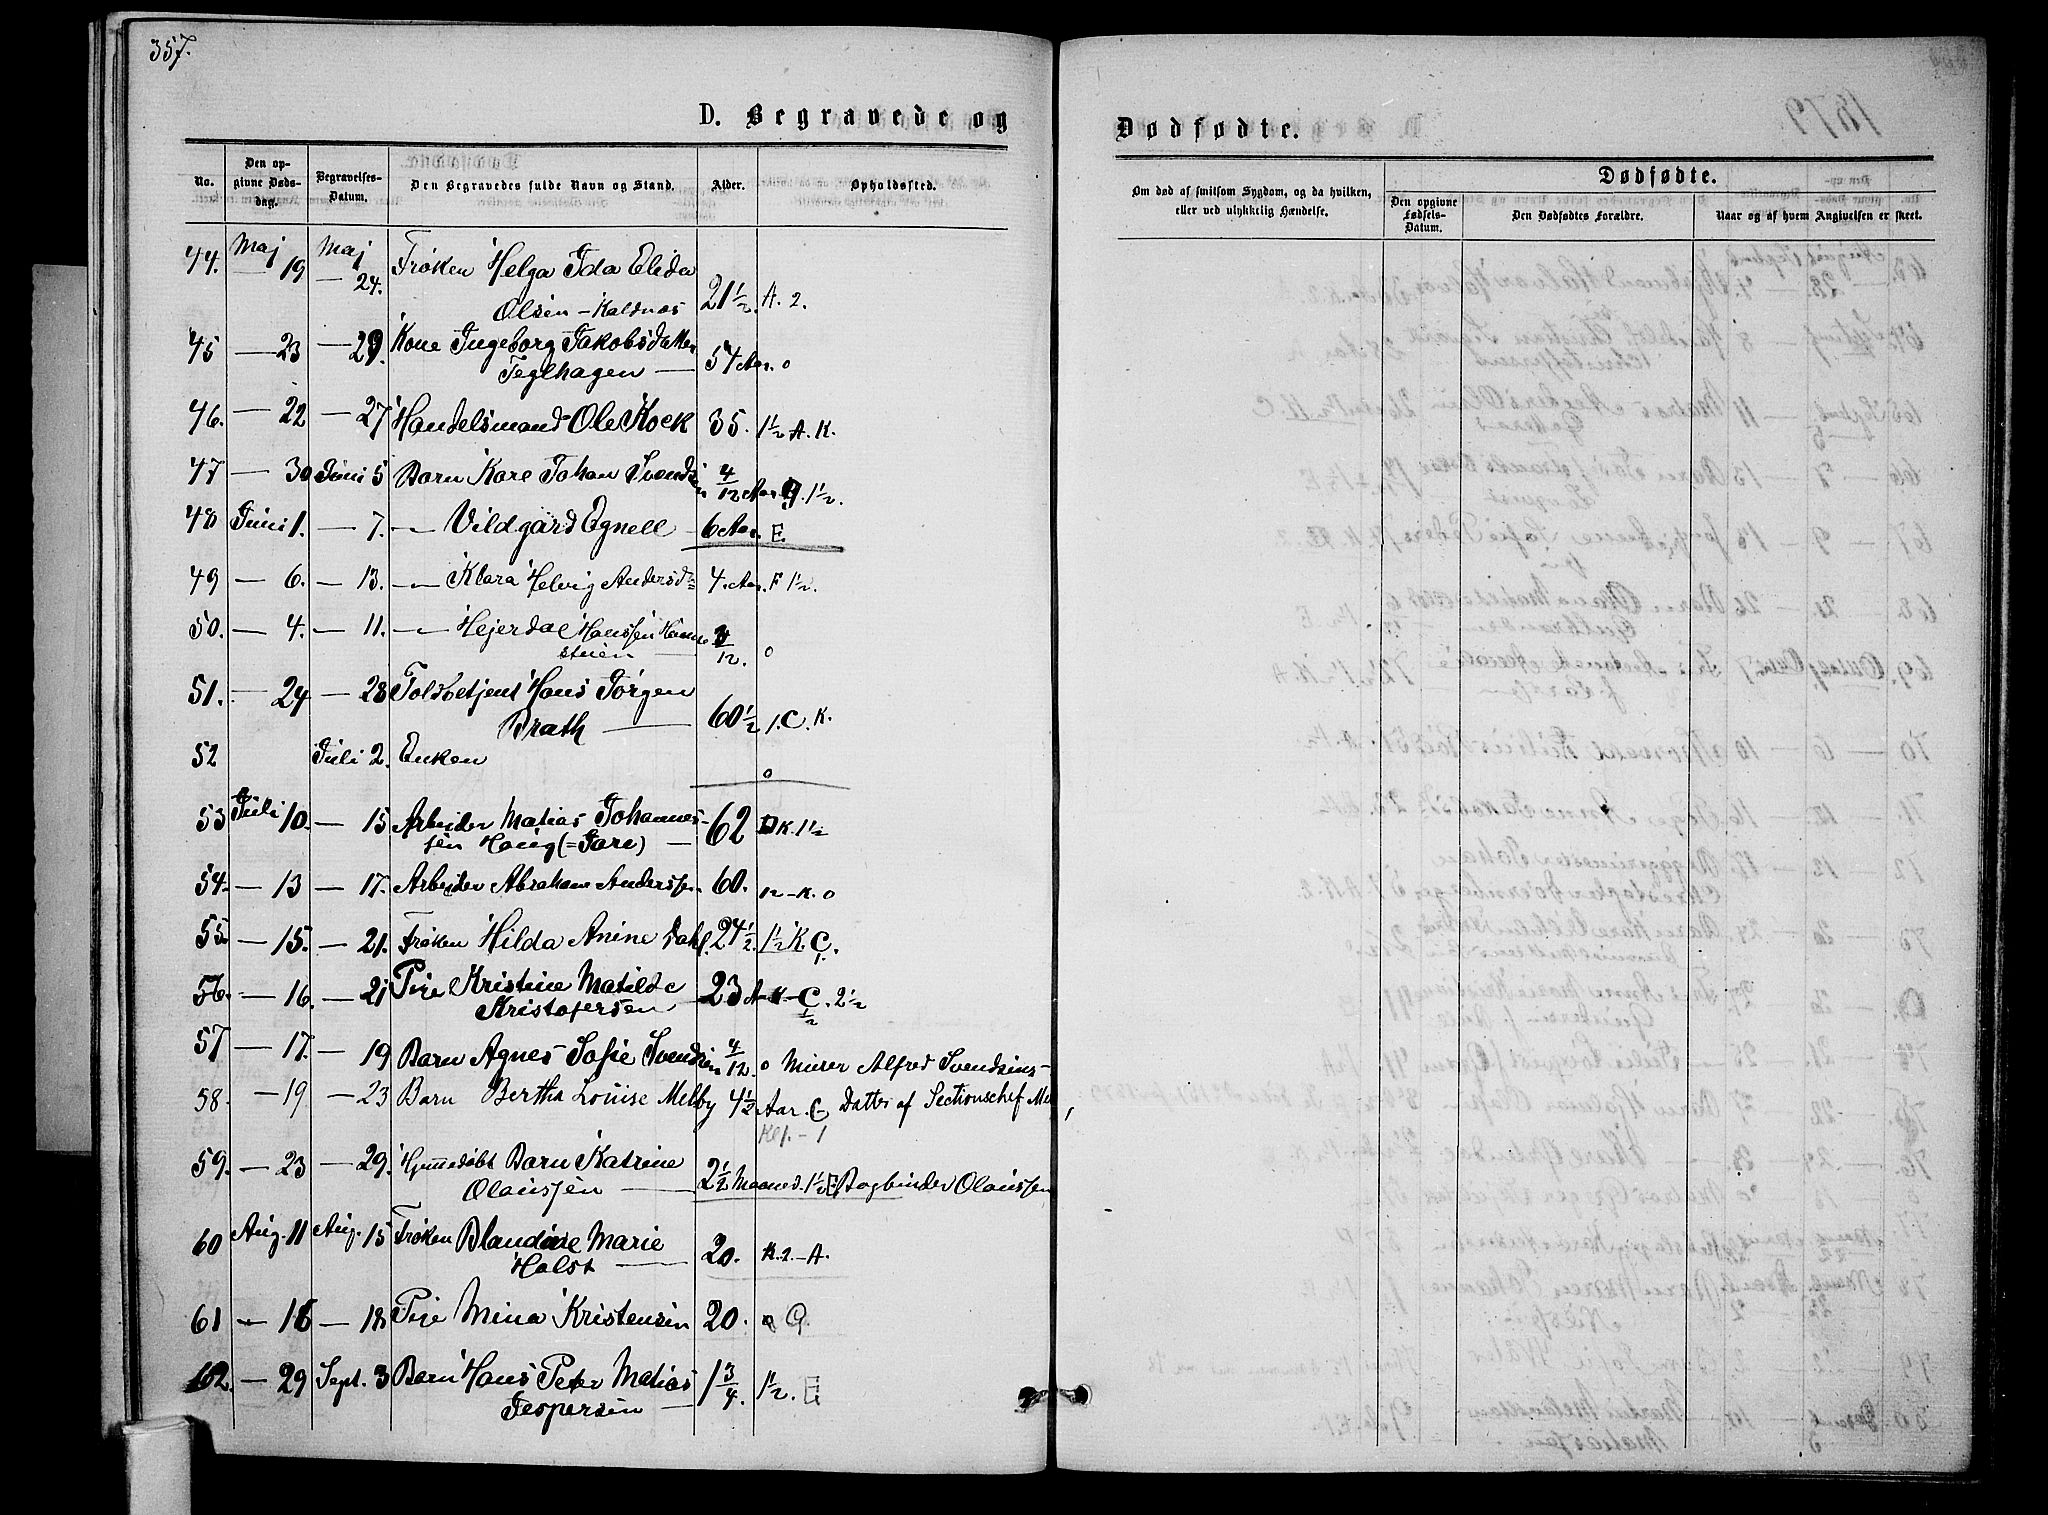 357.
D. Begravede og
No. Den opgivne Dødsdag. Begravelses-Datum. Den Begravedes fulde Navn og Stand. Alder. Opholdssted.
44. Maj 19 Maj 24. Frøken Helga Ida Elida
Olsen – Kaldnæs 21½. A. 2.
45 — 23 — 29. Kone Ingeborg Jakobsdatter
Teglhagen — 54 Aar. o
46. — 22 — 27 Handelsmand Ole Kock 35. 1½ A. K.
47 — 30 Juni 5 Barn Kare Johan Svendsen 4/12 Aar 1½.
48 Juni 1. — 7. — Vildgard Egnell 6 Aar. E.
49 — 6. — 13. — Klara Helvig Andersd 4. Aar. F 1½.
50. — 4. — 11. — Hejerdal Hanssen
stuen — /12. o
51. — 24 — 28 Toldbetjent Hans Jørgen
Brath — 60½ 1. C. K.
52 Juli 2. Enken o
53 Juli 10. — 15 Arbeider Matias Johannes-
sen Haug (= Fare) — 62 D K. 1½
54. — 13 — 17. Arbeider Abraham Anderssen 60. 12 – K. o
55. — 15. — 21. Frøken Hilda Anine Dahl. 24½. 1½ K. C.
56. — 16. — 21 Pige Kristine Matilde
Kristofersen, 23 A – K – C. 2½
½
57 — 17. — 19 Barn Agnes Sofie Svendsen 4/12. o Murer Alfred Svendsens –
58. — 19 — 23 Barn Bertha Louise Melby 4½ Aar. C – Datter af Sectionschef Mel,
Kl. – 1
59. — 23 — 29. Hjemmedøbt Barn Katrine
Olaussen — 2½ Maaned. 1½ E Bogbinder Olaussen
60 Aug. 11 Aug. 15 Frøken Blandine Marie
Holst — 20. K. 2. – A.
61 — 18 Pige Mina Kristensen 20. o G.
62. — 29 Sept. 3 Barn Hans Peter Matias
Jespersen — 1¾. 1½. E
Dødfødte.
Om død af smitsom Sygdom, og da hvilken, eller ved ulykkelig Hændelse.
Dødfødte.
Den opgivne Fødsels-Datum. Den Dødfødtes Forældre. Naar og af hvem Angivelsen er skeet.